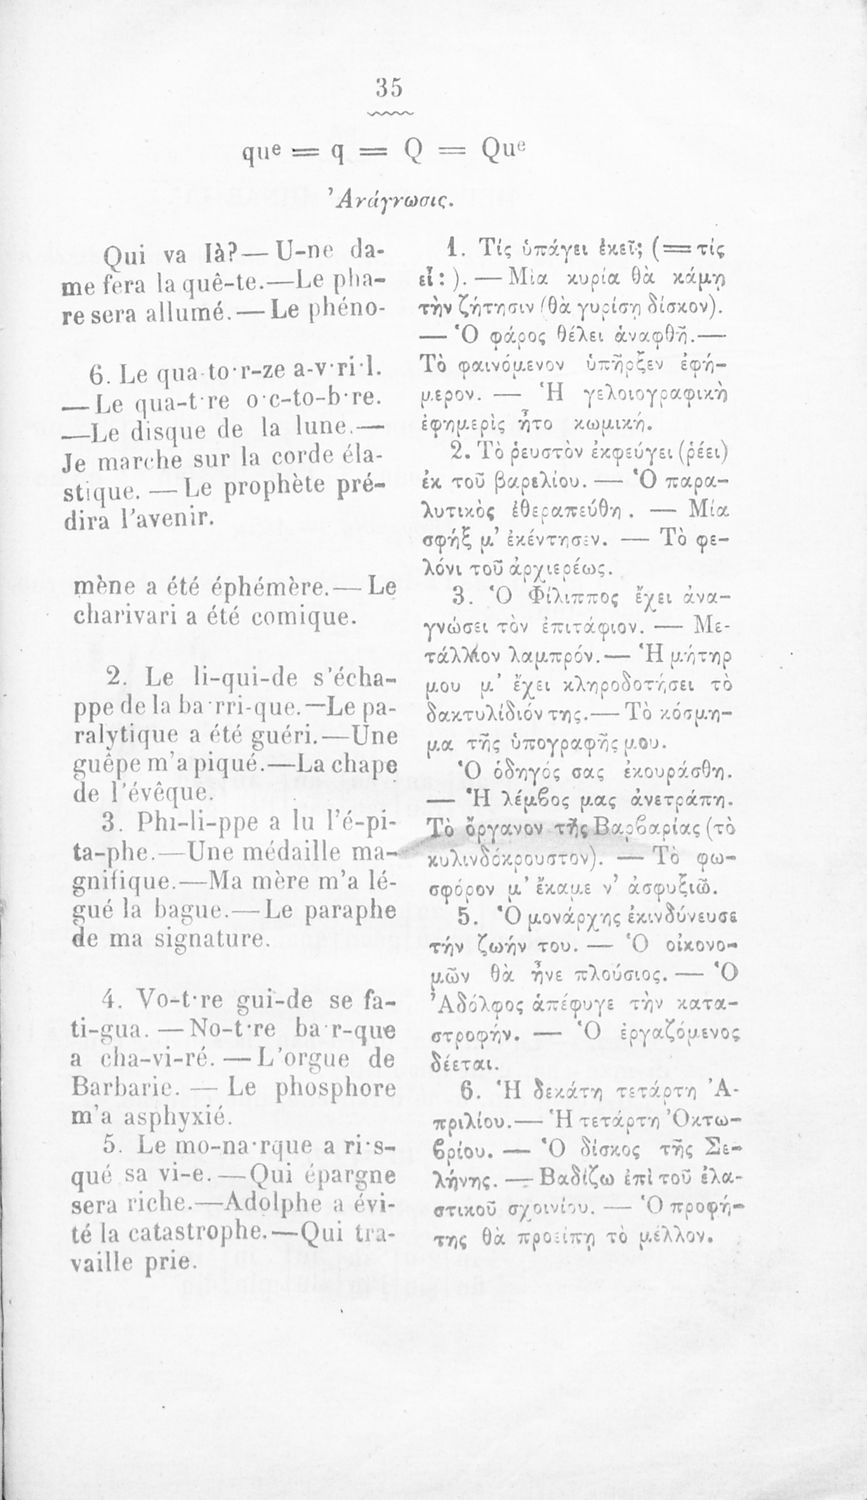 35
que = q = Q = Que
Ἀνάγνωσις.
Qui va là?— U-ne da-
me fera la quê-te.—Le pha-
re sera allumé.— Le phéno-
6. Le qua-to-r-ze a-v-ri-l.
—Le qua-t-re o-c-to-b-re.
—Le disque de la lune.—
Je marche sur la corde éla-
stique. —Le prophète pré-
dira l'avenir.
mène a été éphémère.— Le
charivari a été comique.
2. Le li-qui-de s'écha-
ppe de la ba-rri-que.—Le pa-
ralytique a été guéri.—Une
guêpe m'a piqué.—La chape
de l'évêque.
3. Phi-li-ppe a lu l'é-pi-
ta-phe.—Une médaille ma-
gnifique.—Ma mère m'a lé-
gué la bague.—Le paraphe
de ma signature.
4. Vo-t-re gui-de se fa-
ti-gua. —No-t-re ba-r-que
a cha-vi-ré. — L'orgue de
Barbarie. — Le phosphore
m'a asphyxié.
5. Le mo-na-rque a ri-s-
qué sa vi-e.—Qui épargne
sera riche.—Adolphe a évi-
té la catastrophe.—Qui tra-
vaille prie.
1. Τίς ὑπάγει ἐκεῖ; (=τίς
εἶ: ). — Μία κυρία θὰ κάμῃ
τὴν ζήτησιν (θὰ γυρίσῃ δίσκον).
— Ὁ φάρος θέλει ἀναφθῆ.—
Τὸ φαινόμενον ὑπῆρξεν ἐφή-
μερον. — Ἡ γελοιογραφικὴ
ἐφημερὶς ἦτο κωμική.
2. Τὸ ῥευστὸν ἐκφεύγει (ῥέει)
ἐκ τοῦ βαρελίου. — Ὁ παρα-
λυτικὸς ἐθεραπεύθη . — Μία
σφὴξ μ' ἐκέντησεν. — Τὸ φε-
λόνι τοῦ ἀρχιερέως.
3. Ὁ Φίλιππος ἔχει ἀνα-
γνώσει τὸν ἐπιτάφιον. — Με-
τάλλιον λαμπρόν.— Ἡ μήτηρ
μου μ' ἔχει κληροδοτήσει τὸ
δακτυλίδιόν της.— Τὸ κόσμη-
μα τῆς ὑπογραφῆς μου.
Ὁ ὁδηγός σας ἐκουράσθη.
— Ἡ λέμβος μας ἀνετράπη.
Τὸ ὄργανον τῆς Βαρβαρίας (τὸ
κυλινδόκρουστον). — Τὸ φω-
σφόρον μ' ἔκαμε ν' ἀσφυξιῶ.
5. Ὁ μονάρχης ἐκινδύνευσε
τὴν ζωήν του. — Ὁ οἰκονο-
μῶν θὰ ἦνε πλούσιος. — Ὁ
Ἀδόλφος ἀπέφυγε τὴν κατα-
στροφήν. — Ὁ ἐργαζόμενος
δέεται.
6. Ἡ δεκάτη τετάρτη Ἀ-
πριλίου.— Ἡ τετάρτη Ὀκτω-
βρίου. — Ὁ δίσκος τῆς Σε-
λήνης. — Βαδίζω ἐπὶ τοῦ ἐλα-
στικοῦ σχοινίου. — Ὁ προφή-
της θὰ προείπῃ τὸ μέλλον.